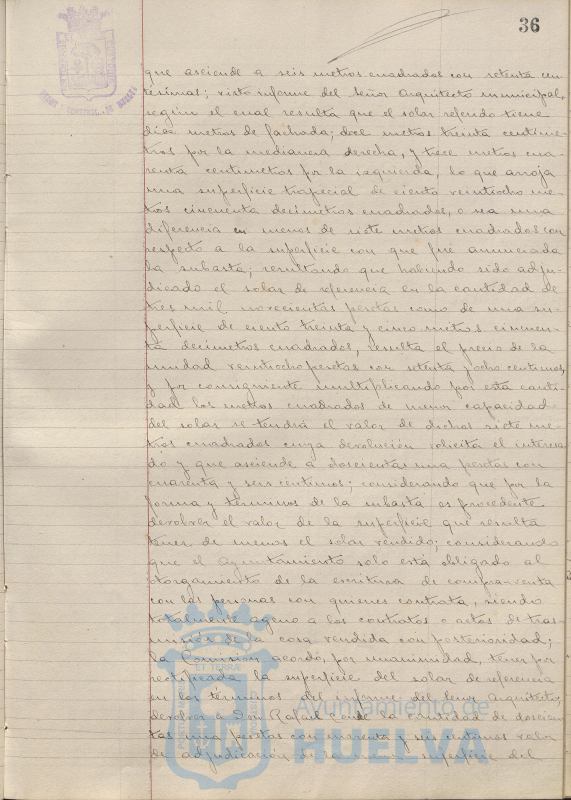 36
que asciende a seis metros cuadrados con setenta cen-
tésimas; visto informe del Señor Arquitecto municipal,
según el cual resulta que el solar referido tiene
diez metros de fachada; doce metros treinta centíme-
tros por la medianería derecha, y trece metros cua-
renta centímetros por la izquierda, lo que arroja
una superficie trapecial de ciento veintiocho me-
tros cincuenta decímetros cuadrados, o sea una
diferencia en menos de siete metros cuadrados con
respecto a la superficie con que fue anunciada
la subasta; resultando que habiendo sido adju-
dicado el solar de referencia en la cantidad de
tres mil novecientas pesetas como de una su-
perficie de ciento treinta y cinco metros cincuen-
ta decímetros cuadrados, resulta el precio de la
unidad veintiocho pesetas con setenta y ocho centimos,
y por consiguiente multiplicando por esta canti-
dad los metros cuadrados de menor capacidad
del solar se tendrá el valor de dichos siete me-
tros cuadrados cuya devolución solicita el interesa-
do y que asciende a doscientas una pesetas con
cuarenta y seis centimos; considerando que por la
forma y términos de la subasta es procedente
devolver el valor de la superficie que resulta
tener de menos el solar vendido; considerando
que el Ayuntamiento solo está obligado al
otorgamiento de la escritura de compra-venta
con las personas con quienes contrata, siendo
totalmente ageno a los contratos o actos de tras-
misión de la cosa vendida con posterioridad;
la Comisión acordó, por unanimidad, tener por
rectificada la superficie del solar de referencia
en los términos del informe del Señor Arquitecto,
devolver a Don Rafael Conde la cantidad de doscien-
tas una pesetas con cuarenta y seis centimos valor
de adjudicación de la menor superficie del
Ayuntamiento de
HUELVA